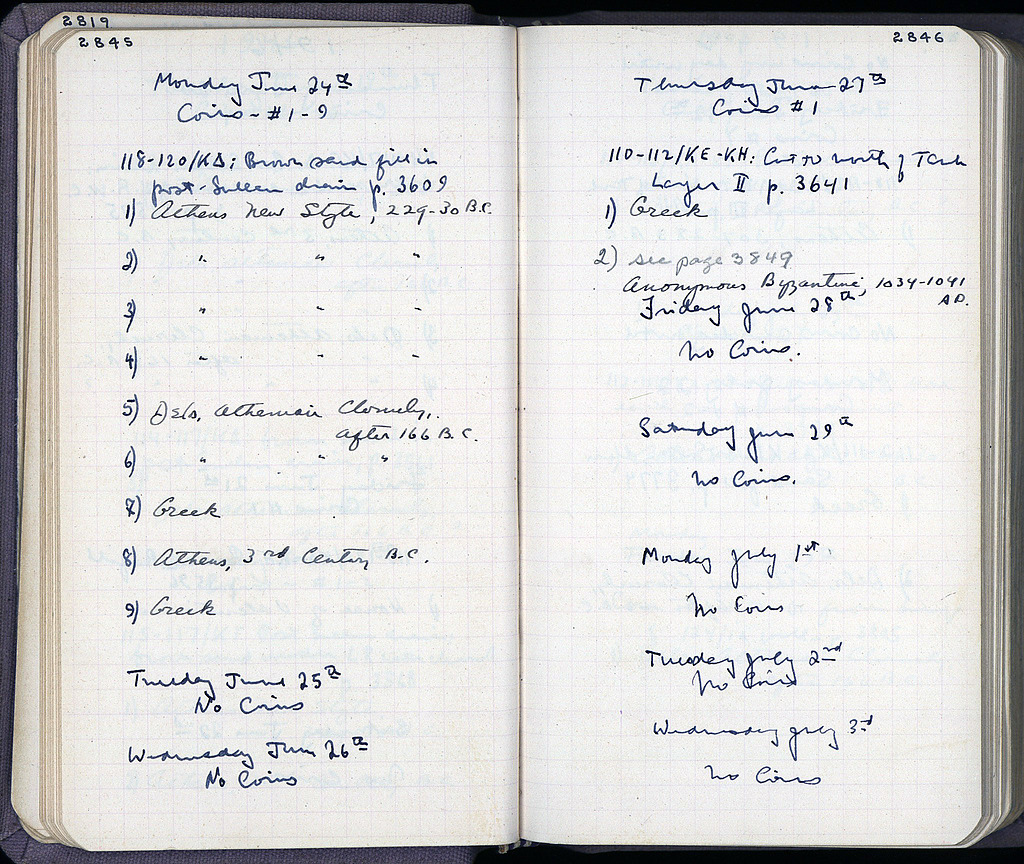 2819
2845
Monday June 24th
Coins - #1-9
118-120/ΚΔ: Brown sand fill in
post-Sullan drain p. 3609
1) Athens New Style, 229-30 B.C.
2) " " "
3) " " "
4) " " "
5) Athenian
After 166 B.C.
6) " " "
7) Greek
8) Athens, 3rd Century B.C.
9) Greek
Tuesday June 25th
No Coins
Wednesday June 26th
No Coins
2846
Thursday June 27th
Coins #1
110-112/ΚΕ-ΚΗ: Cut to north of Tank
Layer II p. 3641
1) Greek
2) see page 3849
Anonymous Byzantine, 1034-1041
A.D.
Friday June 28th
No Coins.
Saturday June 29th
No Coins.
Monday July 1st
No Coins
Tuesday July 2nd
No Coins
Wednesday July 3rd
No Coins